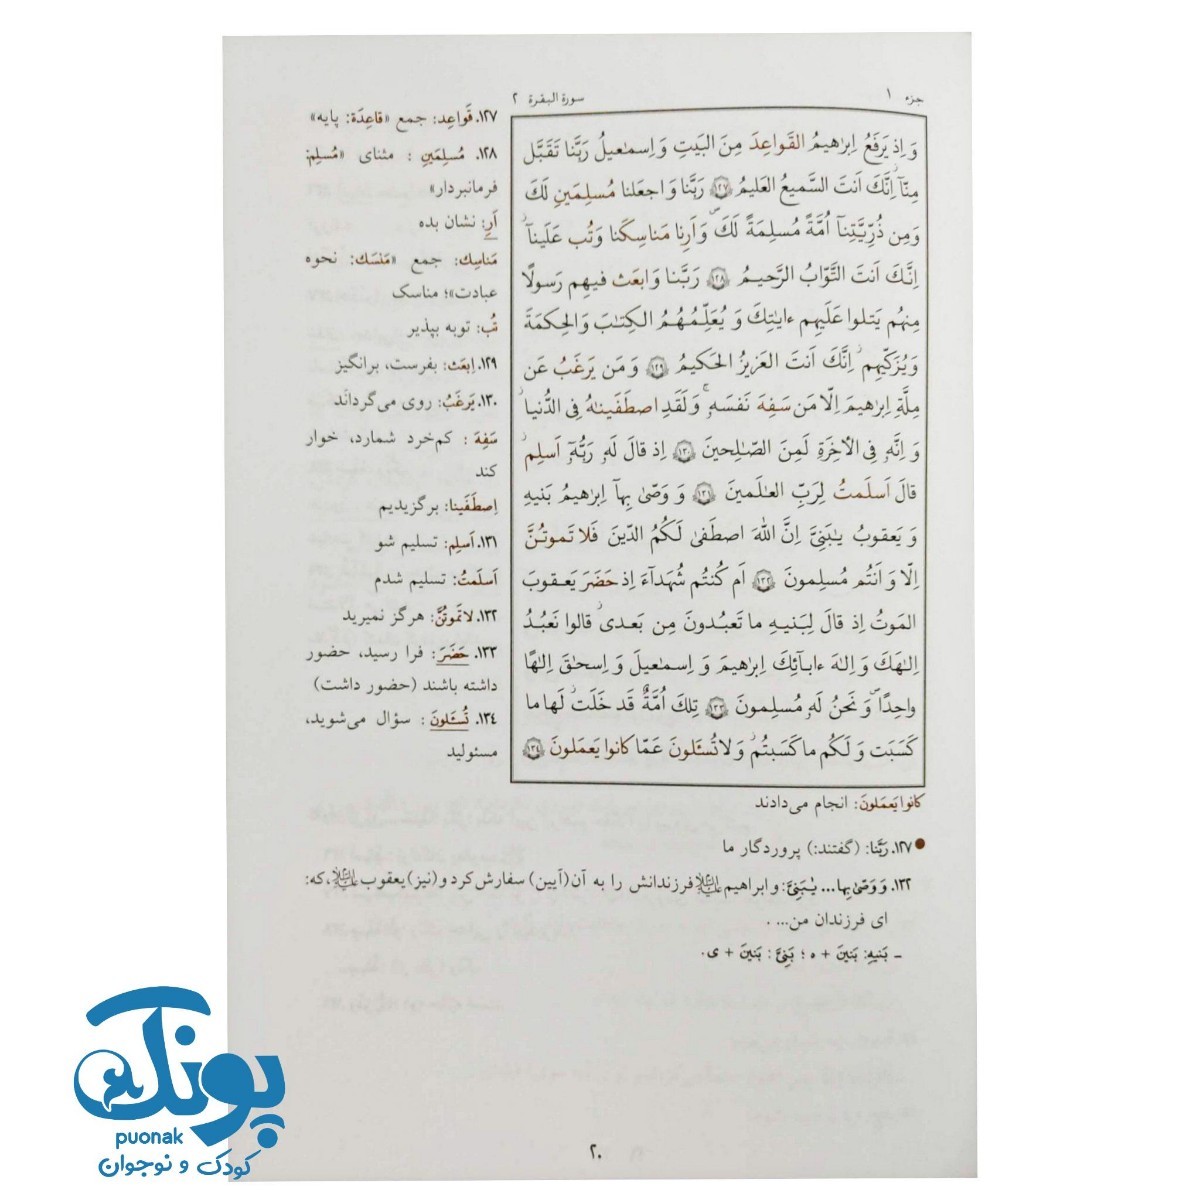 جزء ۱
سورة البقرة ۲
وَ اِذ يَرفَعُ اِبراهيمُ القَواعِدَ مِنَ البَيتِ وَ اِسماعيلُ رَبَّنا تَقَبَّل
مِنّآ اِنَّكَ اَنتَ السَّميعُ العَليمُ ﴿۱۲۷﴾ رَبَّنا وَ اجعَلنا مُسلِمَينِ لَكَ
وَ مِن ذُرِّيَّتِنآ اُمَّةً مُسلِمَةً لَكَ وَ اَرِنا مَناسِكَنا وَ تُب عَلَينآ
اِنَّكَ اَنتَ التَّوّابُ الرَّحيمُ ﴿۱۲۸﴾ رَبَّنا وَ ابعَث فيهِم رَسولًا
مِنهُم يَتلوا عَلَيهِم ءاياتِكَ وَ يُعَلِّمُهُمُ الكِتابَ وَ الحِكمَةَ
وَ يُزَكّيهِم اِنَّكَ اَنتَ العَزيزُ الحَكيمُ ﴿۱۲۹﴾ وَ مَن يَرغَبُ عَن
مِلَّةِ اِبراهيمَ اِلّا مَن سَفِهَ نَفسَهُ وَ لَقَدِ اصطَفَيناهُ فِى الدُّنيا
وَ اِنَّهُ فِى الآخِرَةِ لَمِنَ الصّالِحينَ ﴿۱۳۰﴾ اِذ قالَ لَهُ رَبُّهُ اَسلِم
قالَ اَسلَمتُ لِرَبِّ العالَمينَ ﴿۱۳۱﴾ وَ وَصّىٰ بِها اِبراهيمُ بَنيهِ
وَ يَعقوبُ يٰبَنِىَّ اِنَّ اللهَ اصطَفىٰ لَكُمُ الدّينَ فَلا تَموتُنَّ
اِلّا وَ اَنتُم مُسلِمونَ ﴿۱۳۲﴾ اَم كُنتُم شُهَدآءَ اِذ حَضَرَ يَعقوبَ
المَوتُ اِذ قالَ لِبَنيهِ ما تَعبُدونَ مِن بَعدى قالوا نَعبُدُ
اِلٰهَكَ وَ اِلٰهَ ءابآئِكَ اِبراهيمَ وَ اِسماعيلَ وَ اِسحاقَ اِلٰهًا
واحِدًا وَ نَحنُ لَهُ مُسلِمونَ ﴿۱۳۳﴾ تِلكَ اُمَّةٌ قَد خَلَت لَها ما
كَسَبَت وَ لَكُم ما كَسَبتُم وَ لا تُسئَلونَ عَمّا كانوا يَعمَلونَ ﴿۱۳۴﴾
۱۲۷. قَواعِد: جمع «قاعِدَة: پایه»
۱۲۸. مُسلِمَینِ : مثنای «مُسلِم:
فرمانبردار»
اَرِ: نشان بده
مَناسِك: جمع «مَنسَك: نحوه
عبادت»؛ مناسک
تُب: توبه بپذیر
۱۲۹. اِبعَث: بفرست، برانگیز
۱۳۰. یَرغَبُ: روی می‌گرداند
سَفِهَ : کم‌خرد شمارد، خوار
کند
اِصطَفَینا: برگزیدیم
۱۳۱. اَسلِم: تسلیم شو
اَسلَمتُ: تسلیم شدم
۱۳۲. لا تَموتُنَّ: هرگز نمیرید
۱۳۳. حَضَرَ: فرا رسید، حضور
داشته باشند (حضور داشت)
۱۳۴. تُسئَلونَ : سؤال می‌شوید،
مسئولید
كانوا يَعمَلونَ: انجام می‌دادند
● ۱۲۷. رَبَّنا: (گفتند:) پروردگار ما
۱۳۲. وَ وَصّىٰ بِها... يٰبَنِىَّ: و ابراهیم علیه‌السلام فرزندانش را به آن (آیین) سفارش کرد و (نیز) یعقوب علیه‌السلام، که:
ای فرزندان من... .
ـ بَنیهِ: بَنینَ + ه ؛ بَنِیَّ : بَنینَ + ی.
۲۰
پونک
puonak
کودک و نوجوان